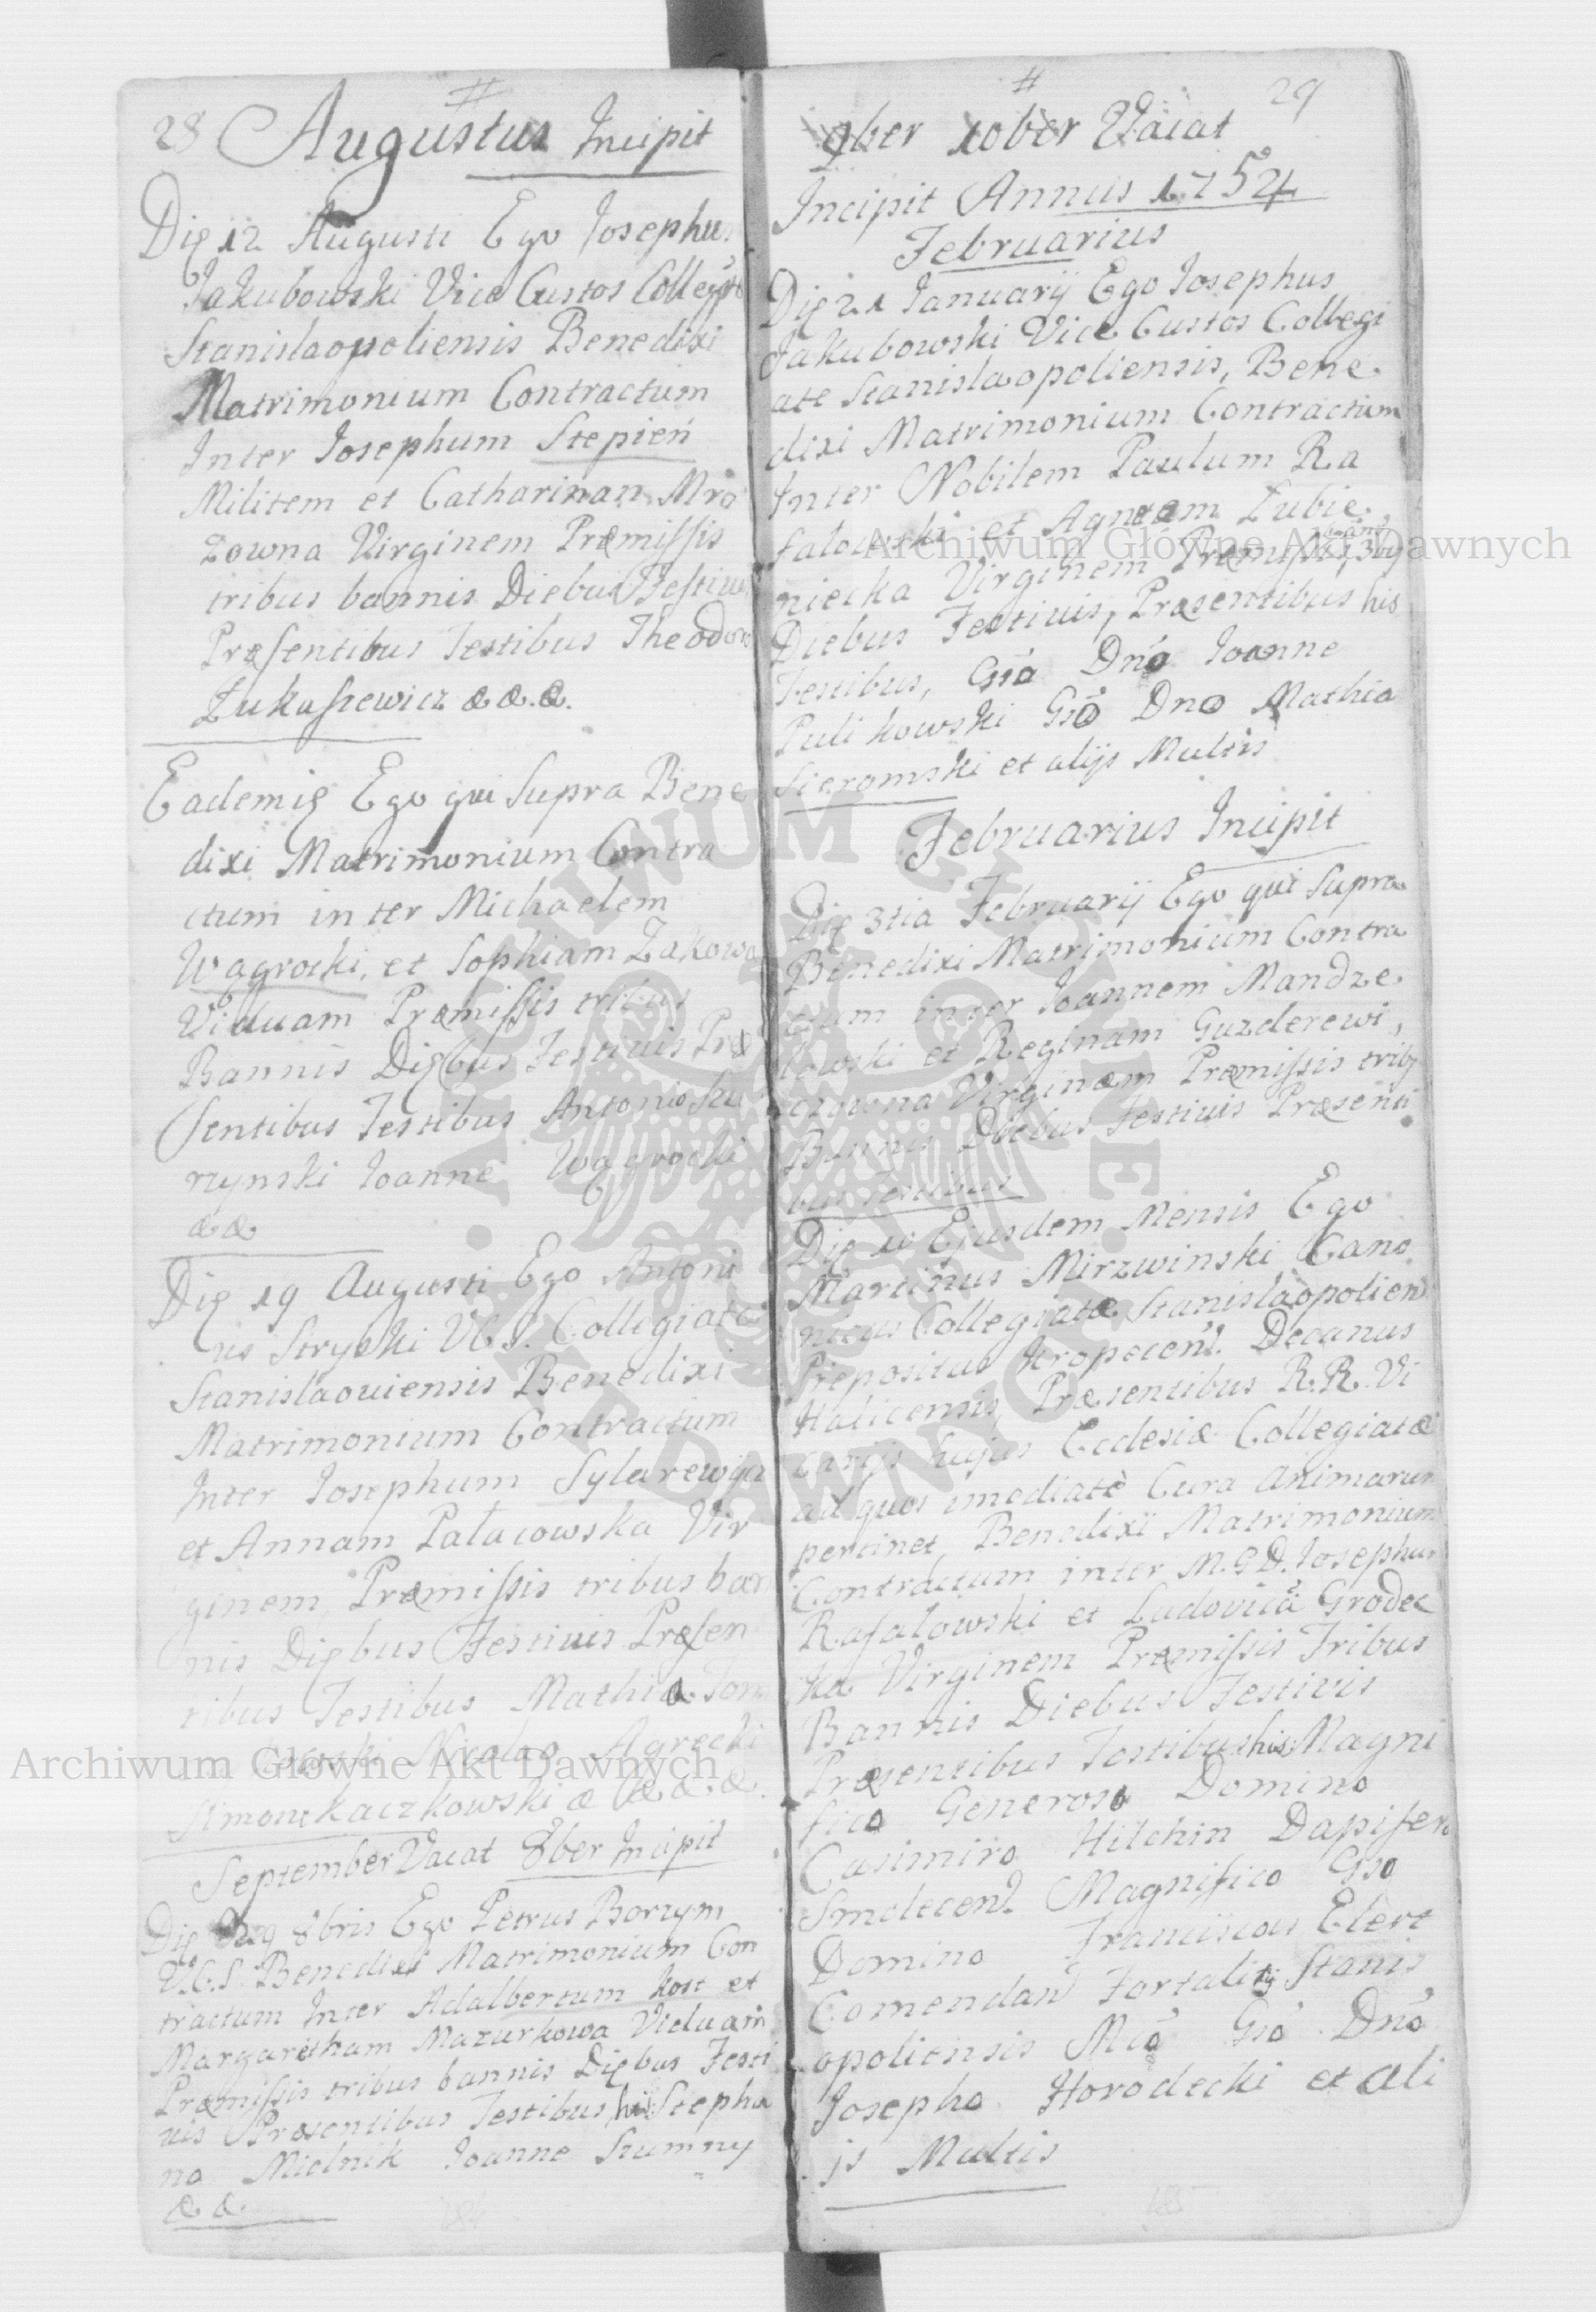 28 Augustus Incipit
Die 12 Augusti Ego Josephus
Jakubowski Vice Custos Collegiatæ
Stanislaopoliensis Benedixi
Matrimonium Contractum
Inter Josephum Stępień
Militem et Catharinan Mro
zowna Virginem Præmissis
tribus bannis Diebus Festivis
Præsentibus Testibus Theodoro
Łukasiewicz &.&.&.
Eademię Ego qui Supra Bene
dixi Matrimonium Contra
ctum inter Michaelem
Wągrocki, et Sophiam Zakowa
Viduam Præmissis tribus
Bannis Diębus Festivis Præ
sentibus Testibus Antonio Sku
rzynski Joanne Wągrocki
& &
Dię 19 Augusti Ego Antoni
us Stryski V.C.S. Collegiatæ
Stanislaoviensis Benedixi
Matrimonium Contractum
Inter Josephum Sylarewicz
et Annam Pałacowska Vir
ginem, Præmissis tribus ban
nis Diębus Festivis Præsen
tibus Testibus Mathia
Nicolao Agrecki
Simone Kaczkowski & & & &.
September Vacat 8ber Incipit
Die 29 8bris Ego Petrus Borzym
V.C.S. Benedixi Matrimonium Con
tractum Inter Adalbertum Kost et
Margaretham Mazurkowa Viduam
Præmissis tribus bannis Diębus Festi
vis Præsentibus Testibus his Stepha
no Mielnik Joanne Szumny
& &.
29
9ber 10ber Vacat
Incipit Annus 1754
Februarius
Dię 21 Januarÿ Ego Josephus
Jakubowski Vice Custos Collegi
atæ Stanislaopoliensis, Bene
dixi Matrimonium Contractum
Inter Nobilem Paulum Ra
falowski et Agnetem Łubie
niecka Virginem Præmissis 3bus
Diebus Festivis, Præsentibus his
Testibus, Gso Dno Joanne
Pulikowski Gso Dno Mathia
Sieromski et alijs Multis
Februarius Incipit
Dię 3tia Februarÿ Ego qui Supra
Benedixi Matrimonium Contra
ctum inter Joannem Mandze
lowski et Reginam Guzderewi,
czowna Virginem Præmissis tribg
Bannis Diebus Festivis Præsenti
bus Testibus
Dię 10 Ejusdem Mensis Ego
Martinus Mirzwinski Cano
nicus Collegiatæ Stanislaopolien
Præpositus Kropecen. Decanus
Halicensis, Præsentibus R.R. Vi
carijs hujus Ecclesiæ Collegiatæ
ad quos imediatè Cura Animarum
pertinet, Benedixi Matrimonium
Contractum inter M.G.D. Josephum
Rafalowski et Ludovică Grodec
ka Virginem Præmissis Tribus
Bannis Diebus Festivis
Præsentibus Testibus his Magni
fico Generoso Domino
Casimiro Hilchin Dapifero
Smolecen. Magnifico Gso
Domino Franciscus Elert
Comendan Fortalitij Stanis
opoliensis Mco Gso Dno
Josepho Horodecki et ali
js Multis
Archiwum Główne Akt Dawnych
Archiwum Główne Akt Dawnych
ARCHIWUM GŁÓWNE AKT DAWNYCH